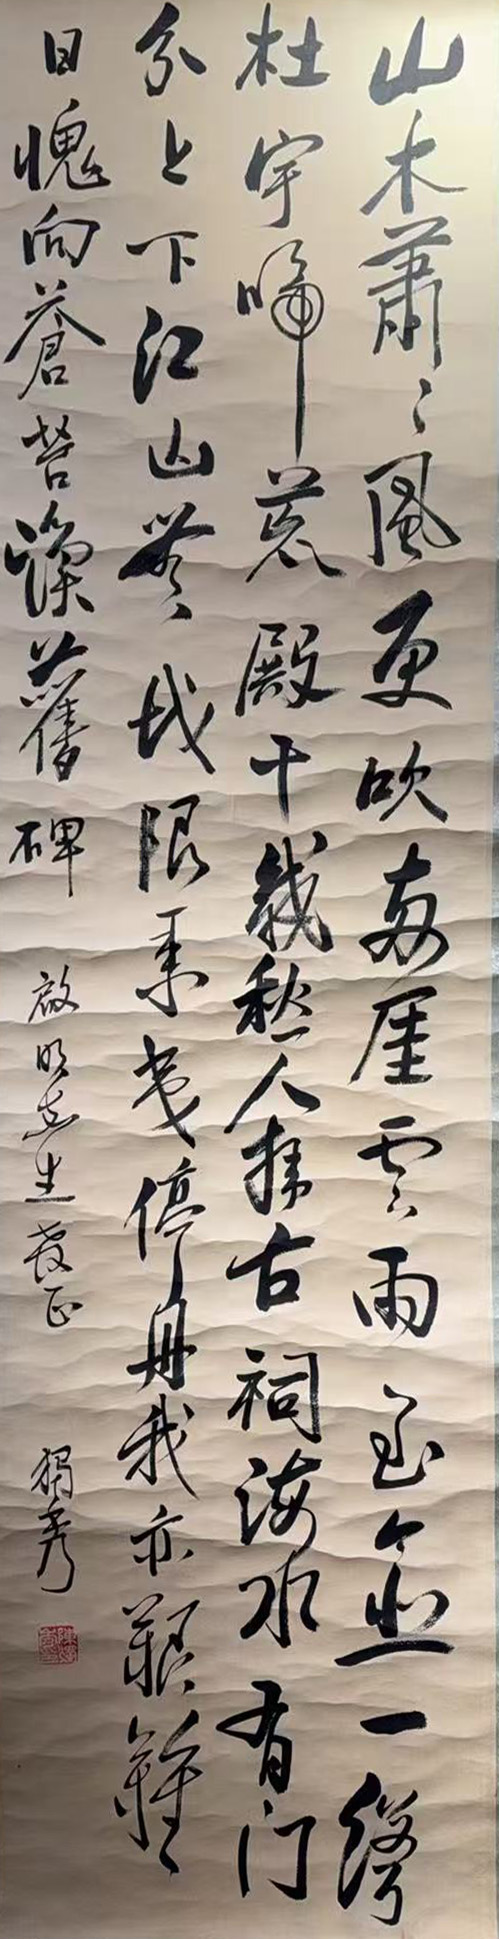 山木蕭〻風更吹两厓雲雨至今悲一聲
杜宇啼荒殿十載愁人拜古祠海水有门
分上下江山無地限華夷停舟我亦艱難
日愧向蒼苔讀舊碑
啟明先生教正
獨秀